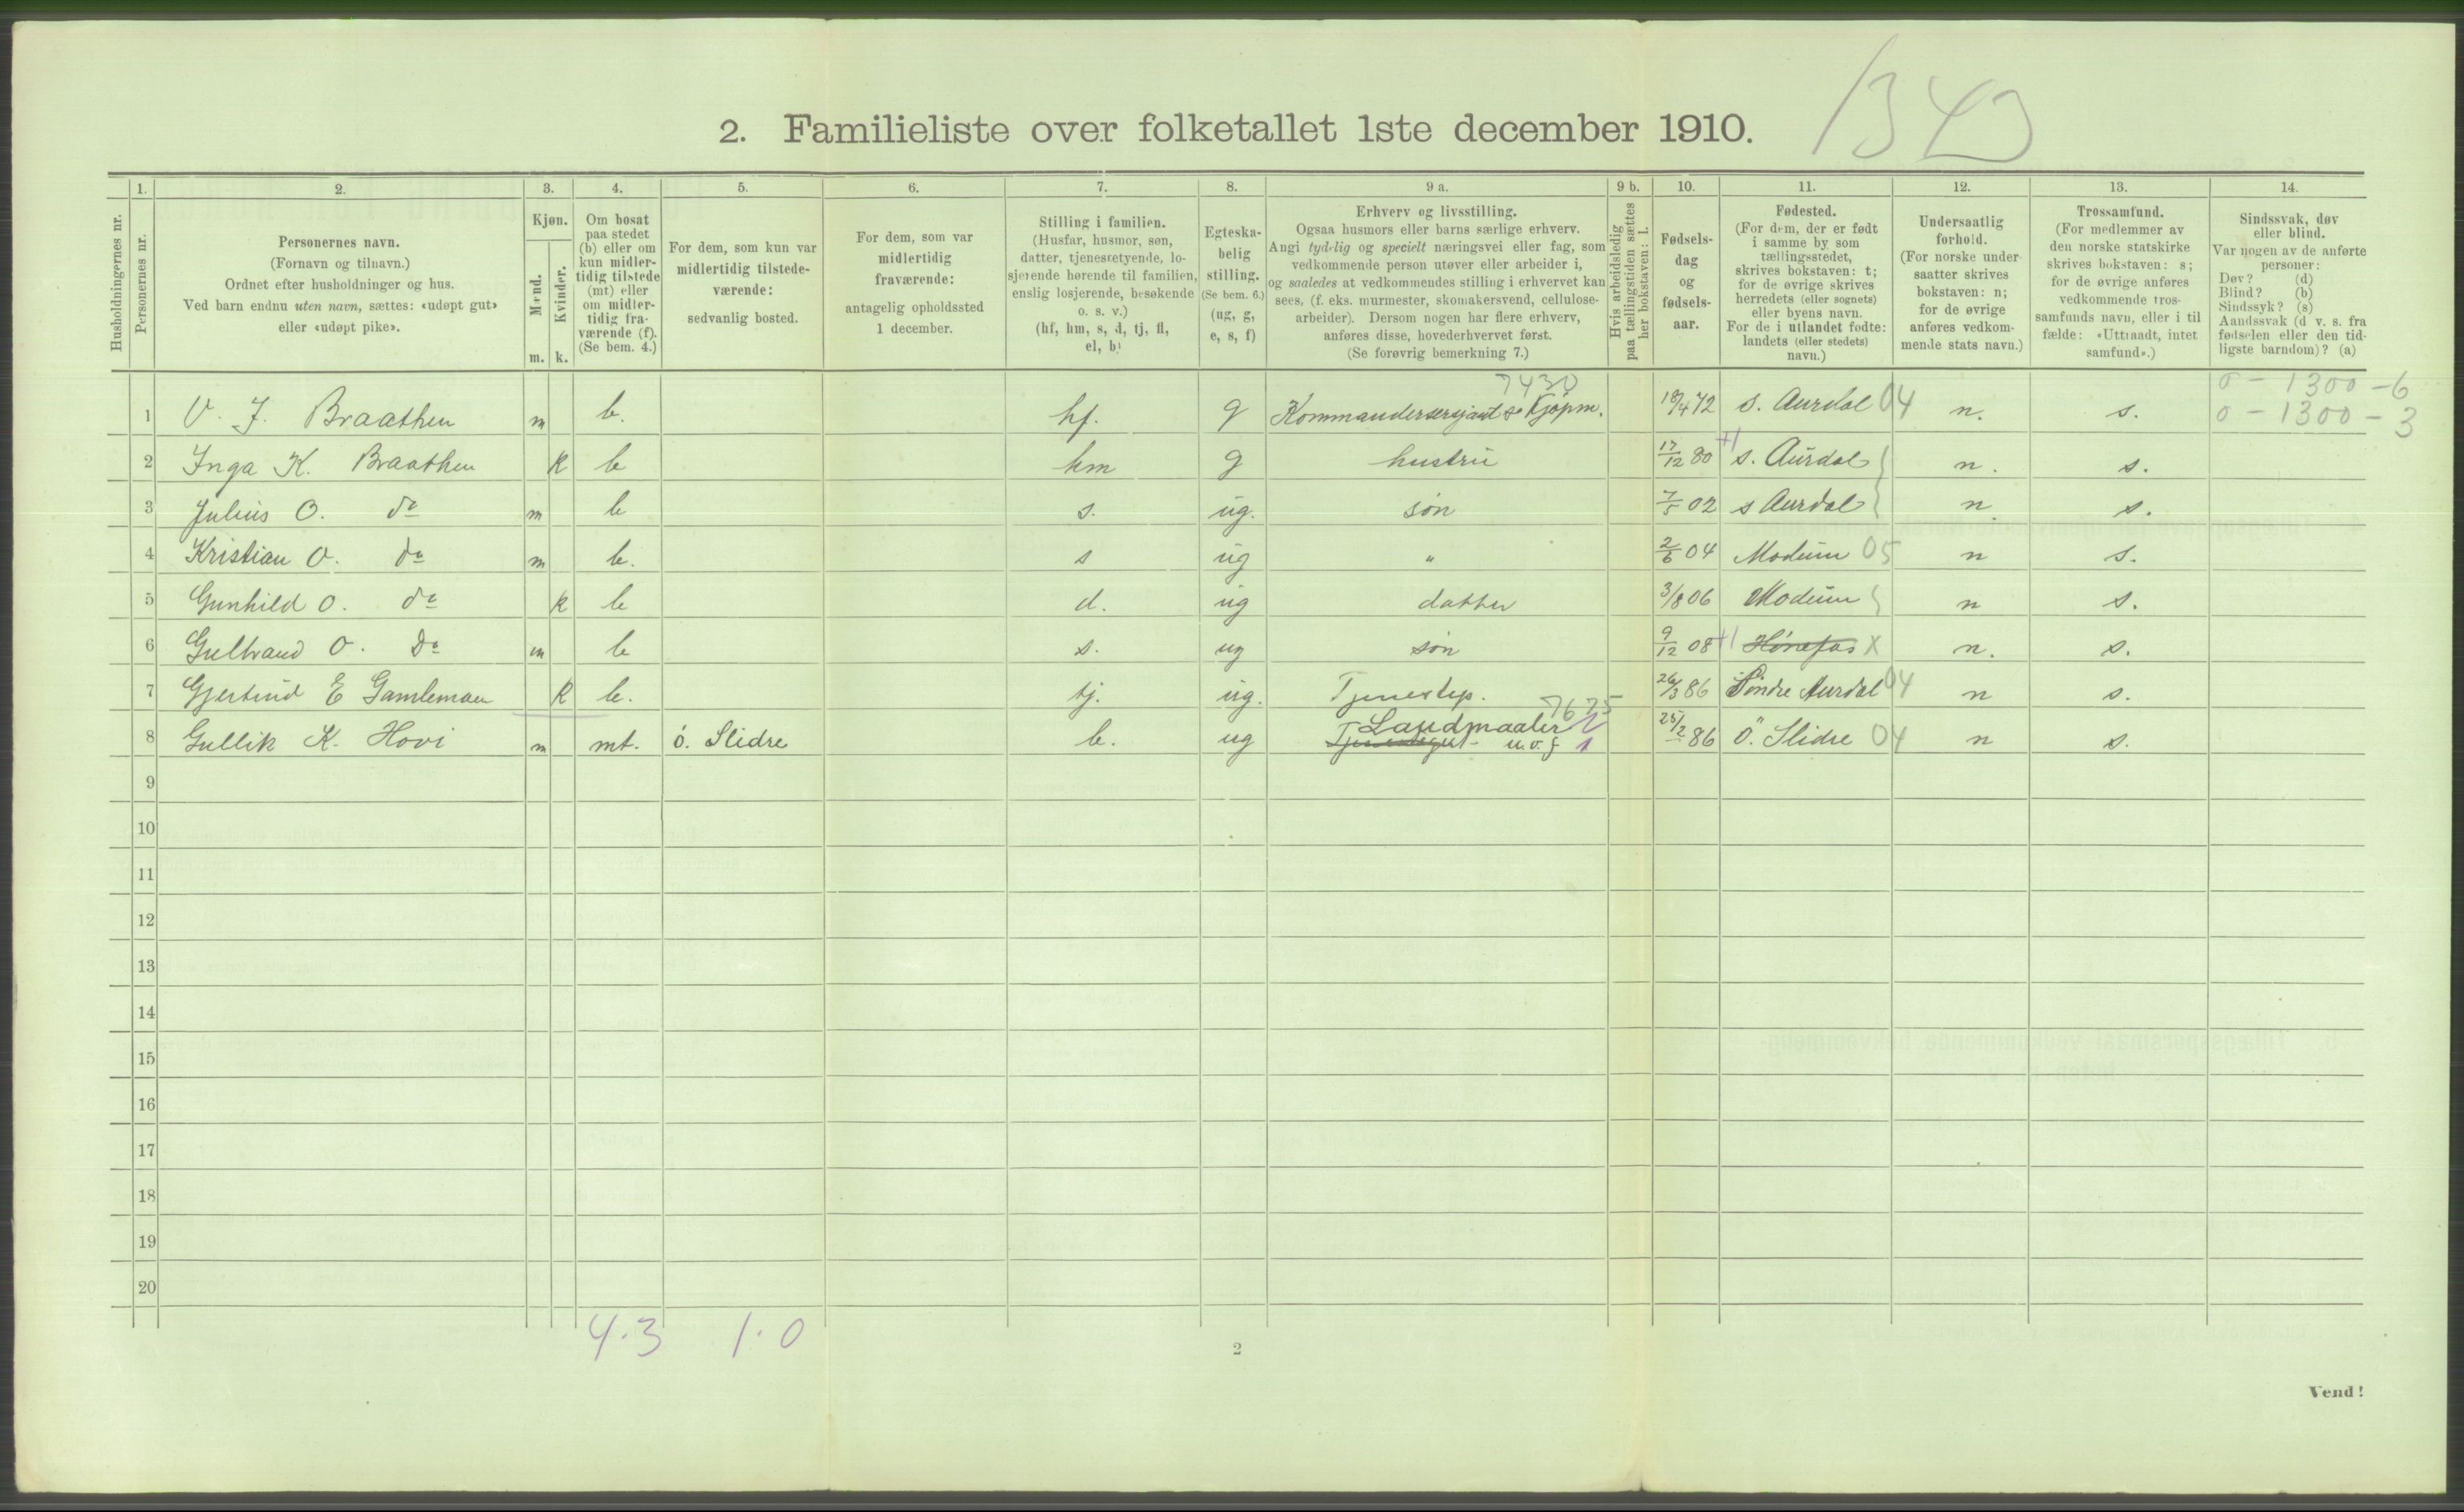 2. Familieliste over folketallet 1ste december 1910.
1343
1. 2. 3. 4. 5. 6. 7. 8. 9 a. 9 b. 10. 11. 12. 13. 14.
Husholdningernes nr.
Personernes nr.
Personernes navn.
(Fornavn og tilnavn.)
Ordnet efter husholdninger og hus.
Ved barn endnu uten navn, sættes: «udøpt gut»
eller «udøpt pike».
Kjøn.
Mænd.
Kvinder.
m. k.
Om bosat
paa stedet
(b) eller om
kun midler-
tidig tilstede
(mt) eller
om midler-
tidig fra-
værende (f).
(Se bem. 4.)
For dem, som kun var
midlertidig tilstede-
værende:
sedvanlig bosted.
For dem, som var
midlertidig
fraværende:
antagelig opholdssted
1 december.
Stilling i familien.
(Husfar, husmor, søn,
datter, tjenestetyende, lo-
sjerende hørende til familien,
enslig losjerende, besøkende
o. s. v.)
(hf, hm, s, d, tj, fl,
el, b)
Egteska-
belig
stilling.
(Se bem. 6.)
(ug, g,
e, s, f)
Erhverv og livsstilling.
Ogsaa husmors eller barns særlige erhverv.
Angi tydelig og specielt næringsvei eller fag, som
vedkommende person utøver eller arbeider i,
og saaledes at vedkommendes stilling i erhvervet kan
sees, (f. eks. murmester, skomakersvend, cellulose-
arbeider). Dersom nogen har flere erhverv,
anføres disse, hovederhvervet først.
(Se forøvrig bemerkning 7.)
Hvis arbeidsledig
paa tællingstiden sættes
her bokstaven: l.
Fødsels-
dag
og
fødsels-
aar.
Fødested.
(For dem, der er født
i samme by som
tællingsstedet,
skrives bokstaven: t;
for de øvrige skrives
herredets (eller sognets)
eller byens navn.
For de i utlandet fødte:
landets (eller stedets)
navn.)
Undersaatlig
forhold.
(For norske under-
saatter skrives
bokstaven: n;
for de øvrige
anføres vedkom-
mende stats navn.)
Trossamfund.
(For medlemmer av
den norske statskirke
skrives bokstaven: s;
for de øvrige anføres
vedkommende tros-
samfunds navn, eller i til
fælde: «Uttraadt, intet
samfund».)
Sindssvak, døv
eller blind.
Var nogen av de anførte
personer:
Døv? (d)
Blind? (b)
Sindssyk? (s)
Aandssvak (d v. s. fra
fødselen eller den tid-
ligste barndom)? (a)
7430 0 - 1300 - 6
1 O. J. Braathen m b. hf. g Kommandersersjant & Kjøpm. 18/4 72 s. Aurdal 04 n. s. 0 - 1300 - 3
2 Inga K. Braathen k b hm g hustru 17/12 80 +1 s. Aurdal n. s.
3 Julius O. do m b s. ug. søn 7/5 02 s Aurdal n. s.
4 Kristian O. do m b. s ug " 2/6 04 Modum 05 n s.
5 Gunhild O. do k b d. ug datter 3/8 06 Modum n s.
6 Gulbrand O. do m b s. ug søn 9/12 08 +1 Hønefos X n. s.
7 Gjertrud E Gamlemoen k b. tj. ug. Tjenestep. 26/3 86 Søndre Aurdal 04 n s.
7625
Landmaaler
8 Gullik K. Hovi m mt. ö. Slidre b. ug Tjenestegut u.o.f 1 25/2 86 Ö. Slidre 04 n s.
9
10
11
12
13
14
15
16
17
18
19
20
4.3 1.0
2
Vend!